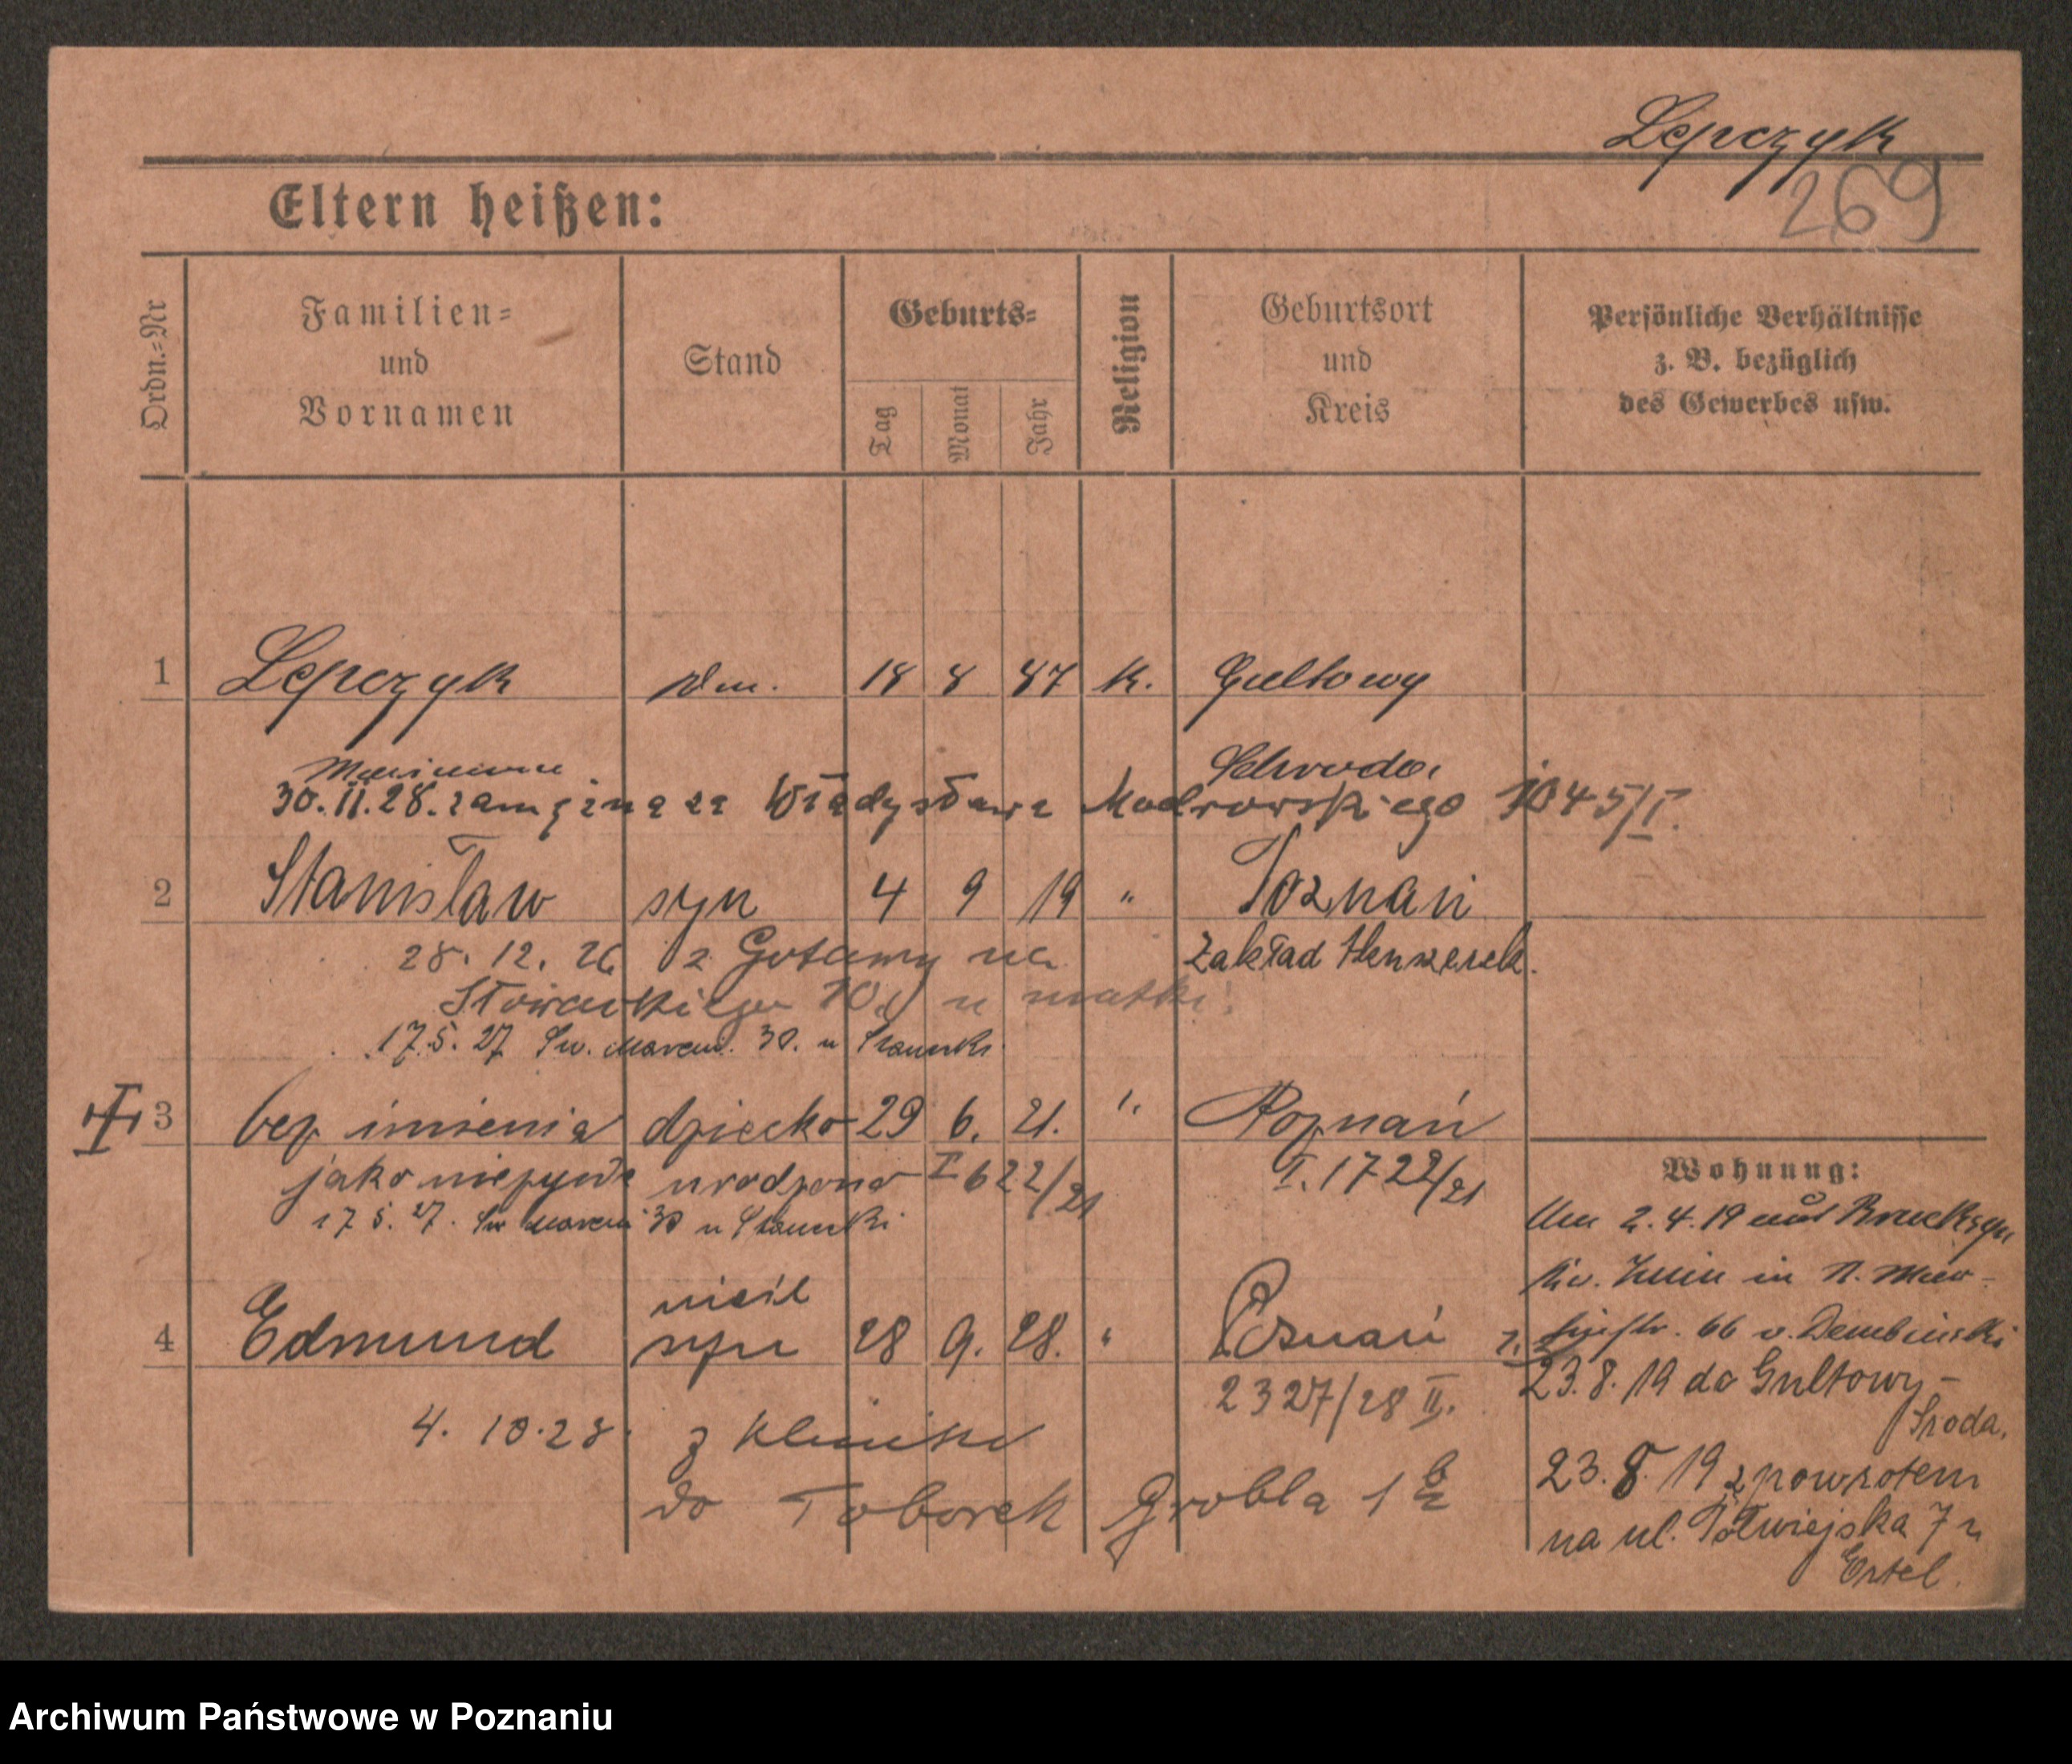 Lepczyk
269
Eltern heißen:
Ordn.-Nr
Familien- und Vornamen
Stand
Geburts-
Tag
Monat
Jahr
Religion
Geburtsort und Kreis
Persönliche Verhältnisse
z. B. bezüglich
des Gewerbes usw.
1 Lepczyk 18 8 87 k. Gultowy
Marianna Schroda
30.11.28. zamężna za Władysława Modrowskiego 1045/I.
2 Stanisław syn 4 9 19 " Poznań
28. 12. 26 z na Zakład
Słowackiego 10 u matki
17.5.27 Św. Marcin. 30. u
3 bez imienia dziecko 29 6. 21. " Poznań
jako nieżywe urodzono I 622/21 I. 1722/21
17 5. 27. Św Marcin 30 u
Wohnung:
2.4.19 aus
in
66 v. Dembinski
4 Edmund syn 28 9. 28. " Poznań
23.8.19 do Gultowy -
2327/28 II.
Środa.
4. 10.28. z kliniki
23.8.19 z powrotem
do Toborek Grobla 1
na ul. Półwiejska 7 u
Ertel.
Archiwum Państwowe w Poznaniu